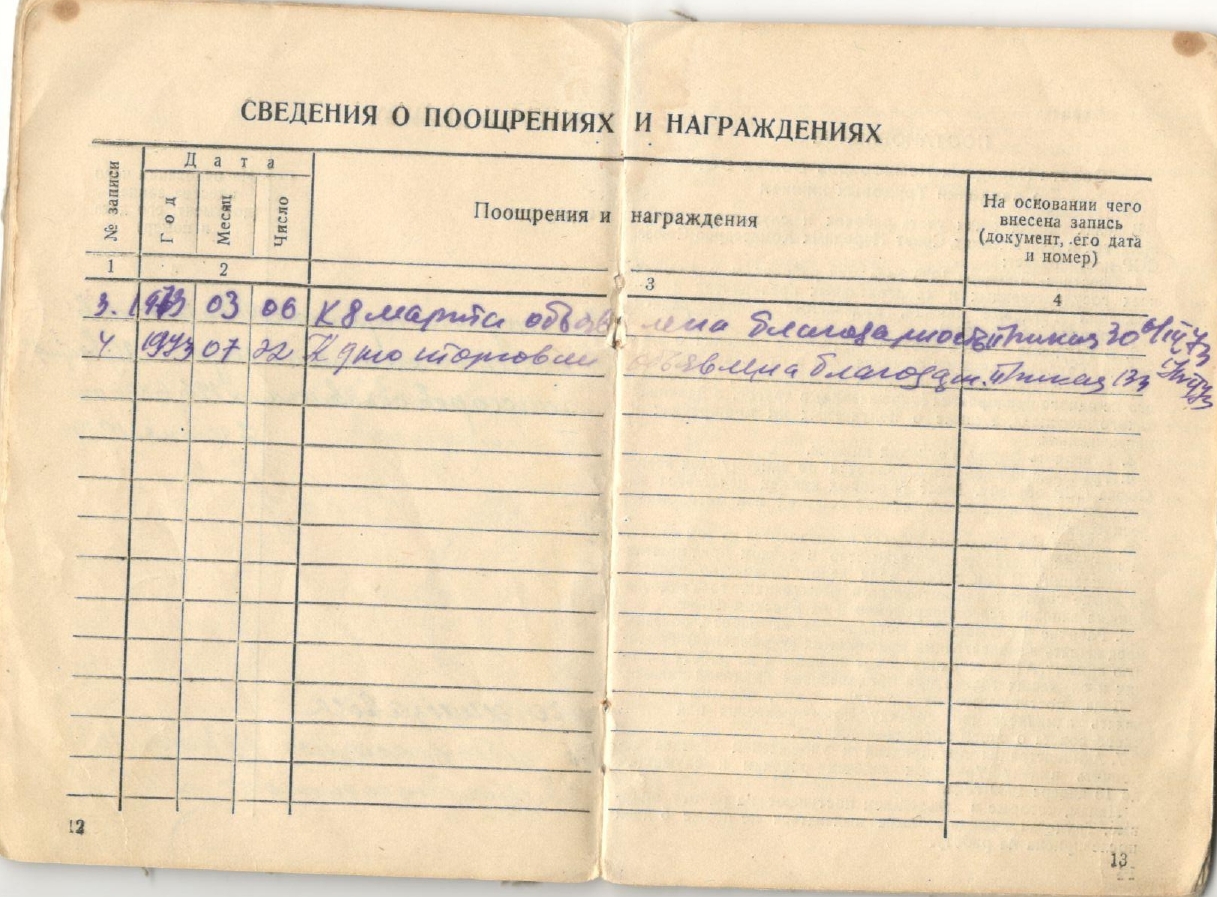 СВЕДЕНИЯ О ПООЩРЕНИЯХ И НАГРАЖДЕНИЯХ
№ записи
Дата
Год
Месяц
Число
Поощрения и награждения
На основании чего
внесена запись
(документ, его дата
и номер)
1
2
3
4
3. 1973 03 06 К 8 марта объявлена благодарность Приказ 30 6/III 73
4 1973 07 22 К дню торговли объявлена благодарн. Приказ 133
12
13